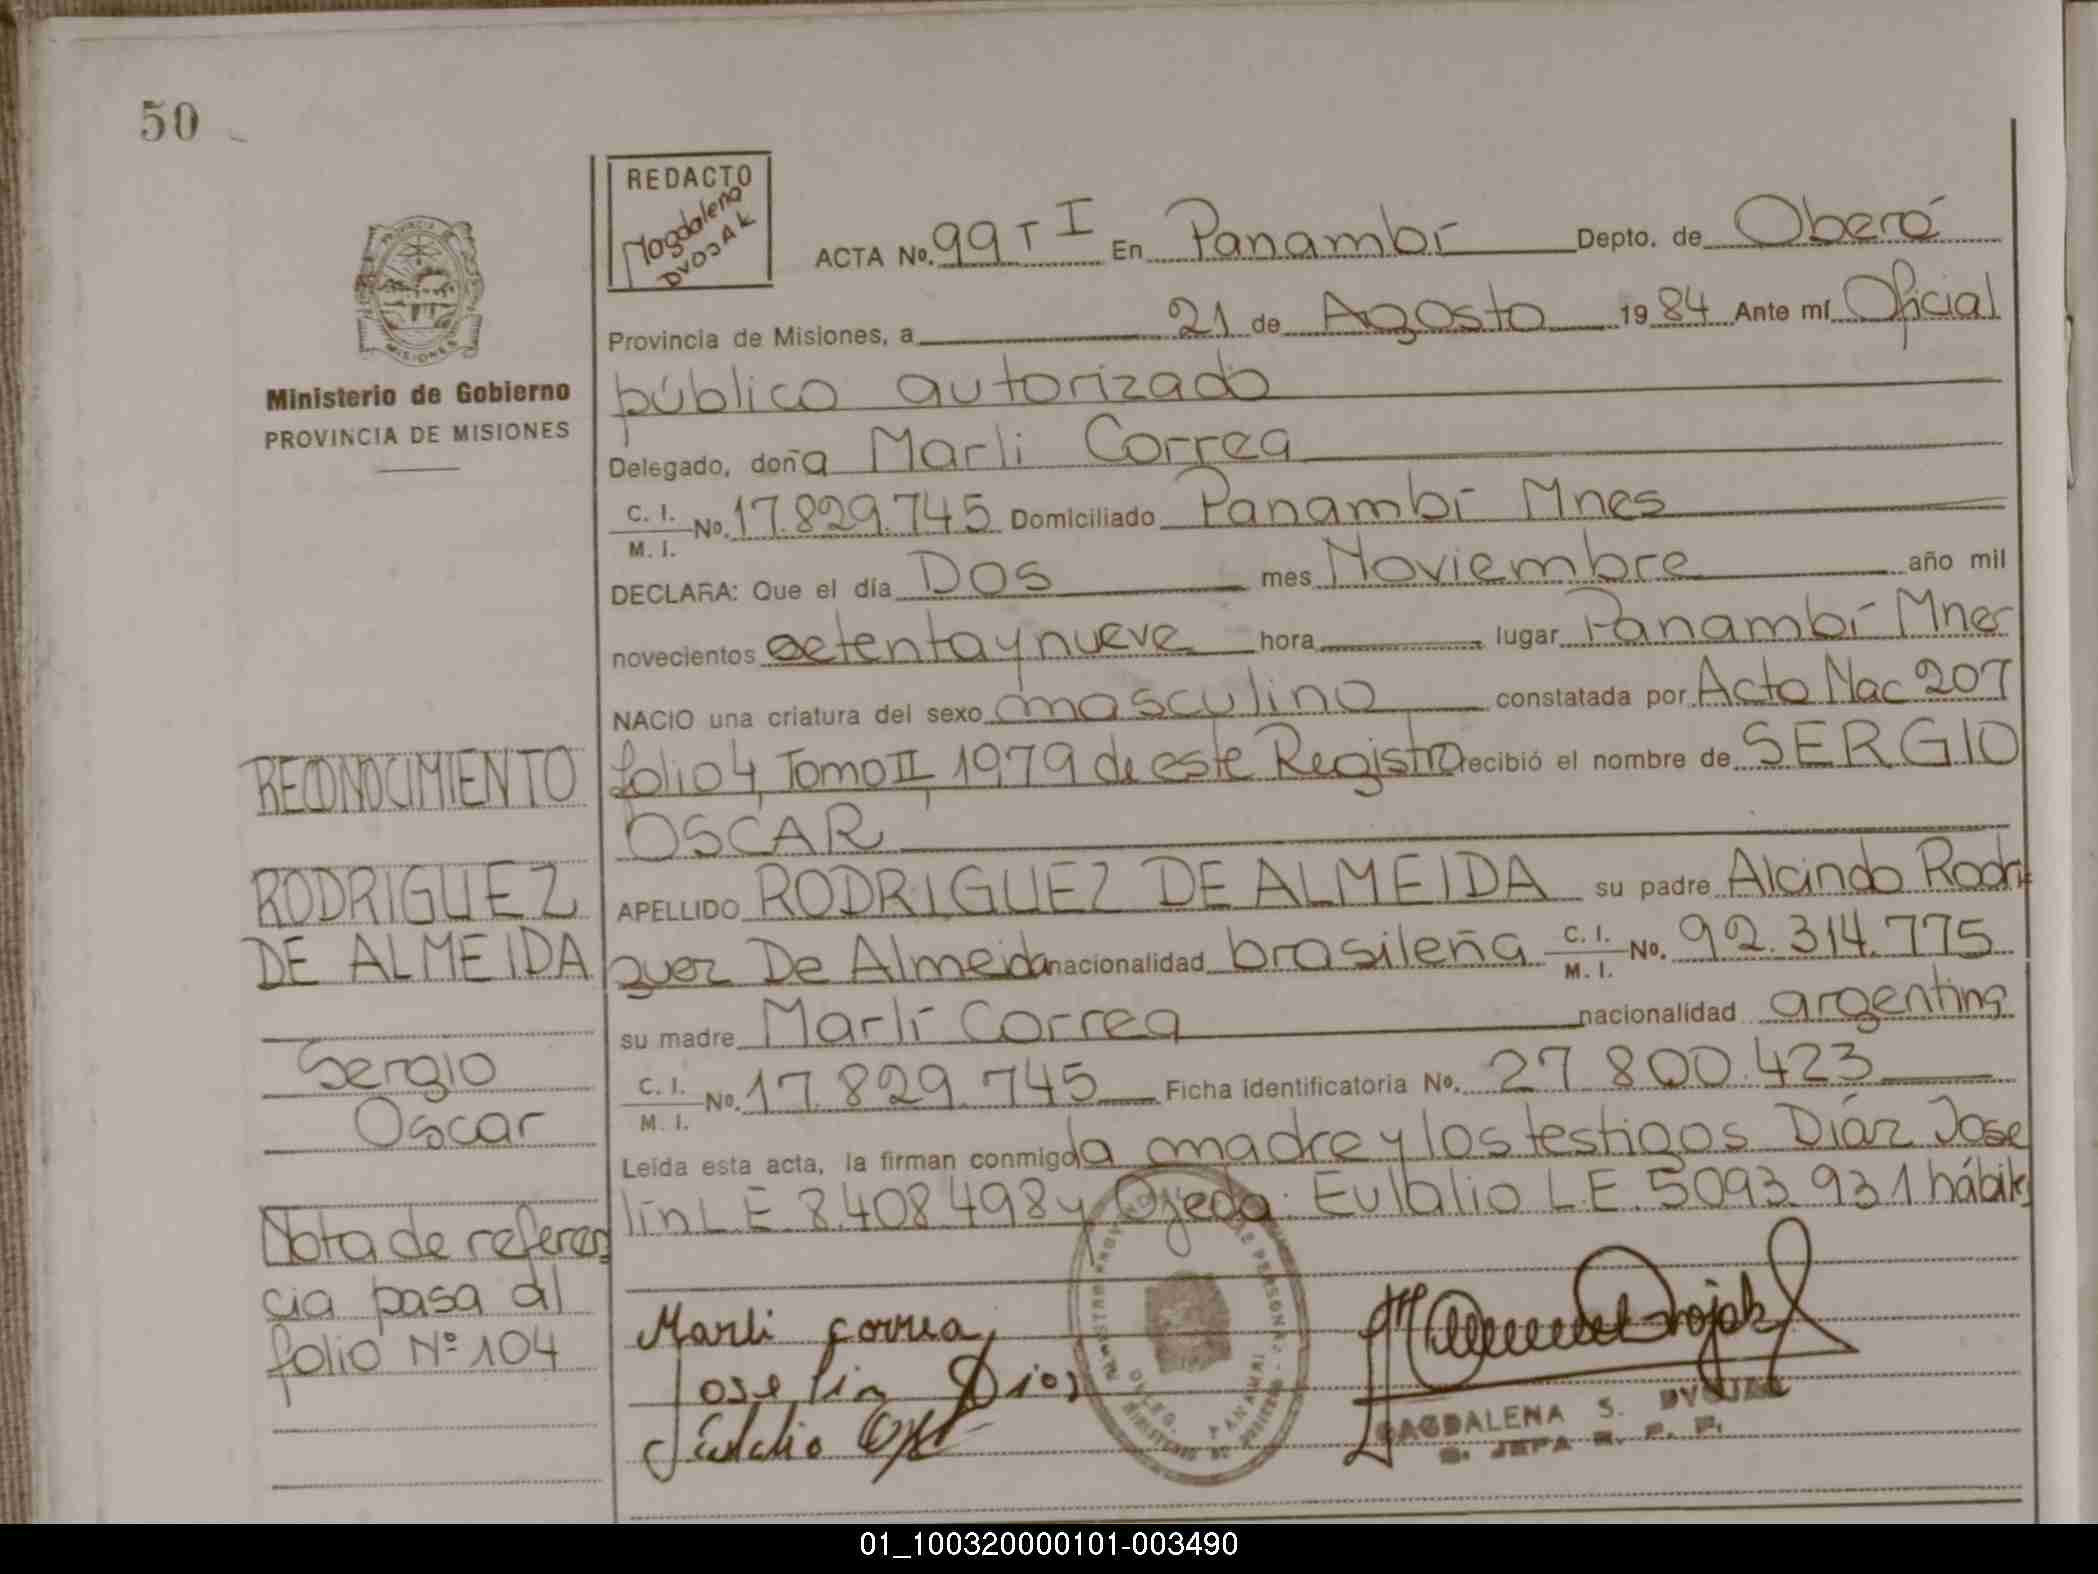 50
REDACTO
Magdalena
DVOJAK
ACTA No. 99 T I En Panambí Depto. de Oberá
Provincia de Misiones, a 21 de Agosto 1984 Ante mí Oficial
público autorizado
Ministerio de Gobierno
PROVINCIA DE MISIONES
Delegado, doña Marli Correa
C. I.
M. I. No. 17.829.745 Domiciliado Panambí Mnes
DECLARA: Que el día Dos mes Noviembre año mil
novecientos setenta y nueve hora lugar Panambí Mnes
NACIO una criatura del sexo masculino constatada por Acta Nac 207
folio 4, Tomo II, 1979 de este Registro recibió el nombre de SERGIO
OSCAR
APELLIDO RODRIGUEZ DE ALMEIDA su padre Alcindo Rodri
guez De Almeida nacionalidad brasileña C. I. M. I. No. 92.314.775
su madre Marlí Correa nacionalidad argentina
C. I.
M. I. No. 17.829.745 Ficha identificatoria No. 27.800.423
Leída esta acta, la firman conmigo la madre y los testigos Díaz Jose
lín L E 8.408.498 y Ojeda Eulalio L.E. 5.093.931 hábiles
RECONOCIMIENTO
RODRIGUEZ
DE ALMEIDA
Sergio
Oscar
Nota de referen
cia pasa al
folio Nº 104
Marli Correa
Joselin Dias
MAGDALENA S. DVOJAK
PANAMBI
01_100320000101-003490